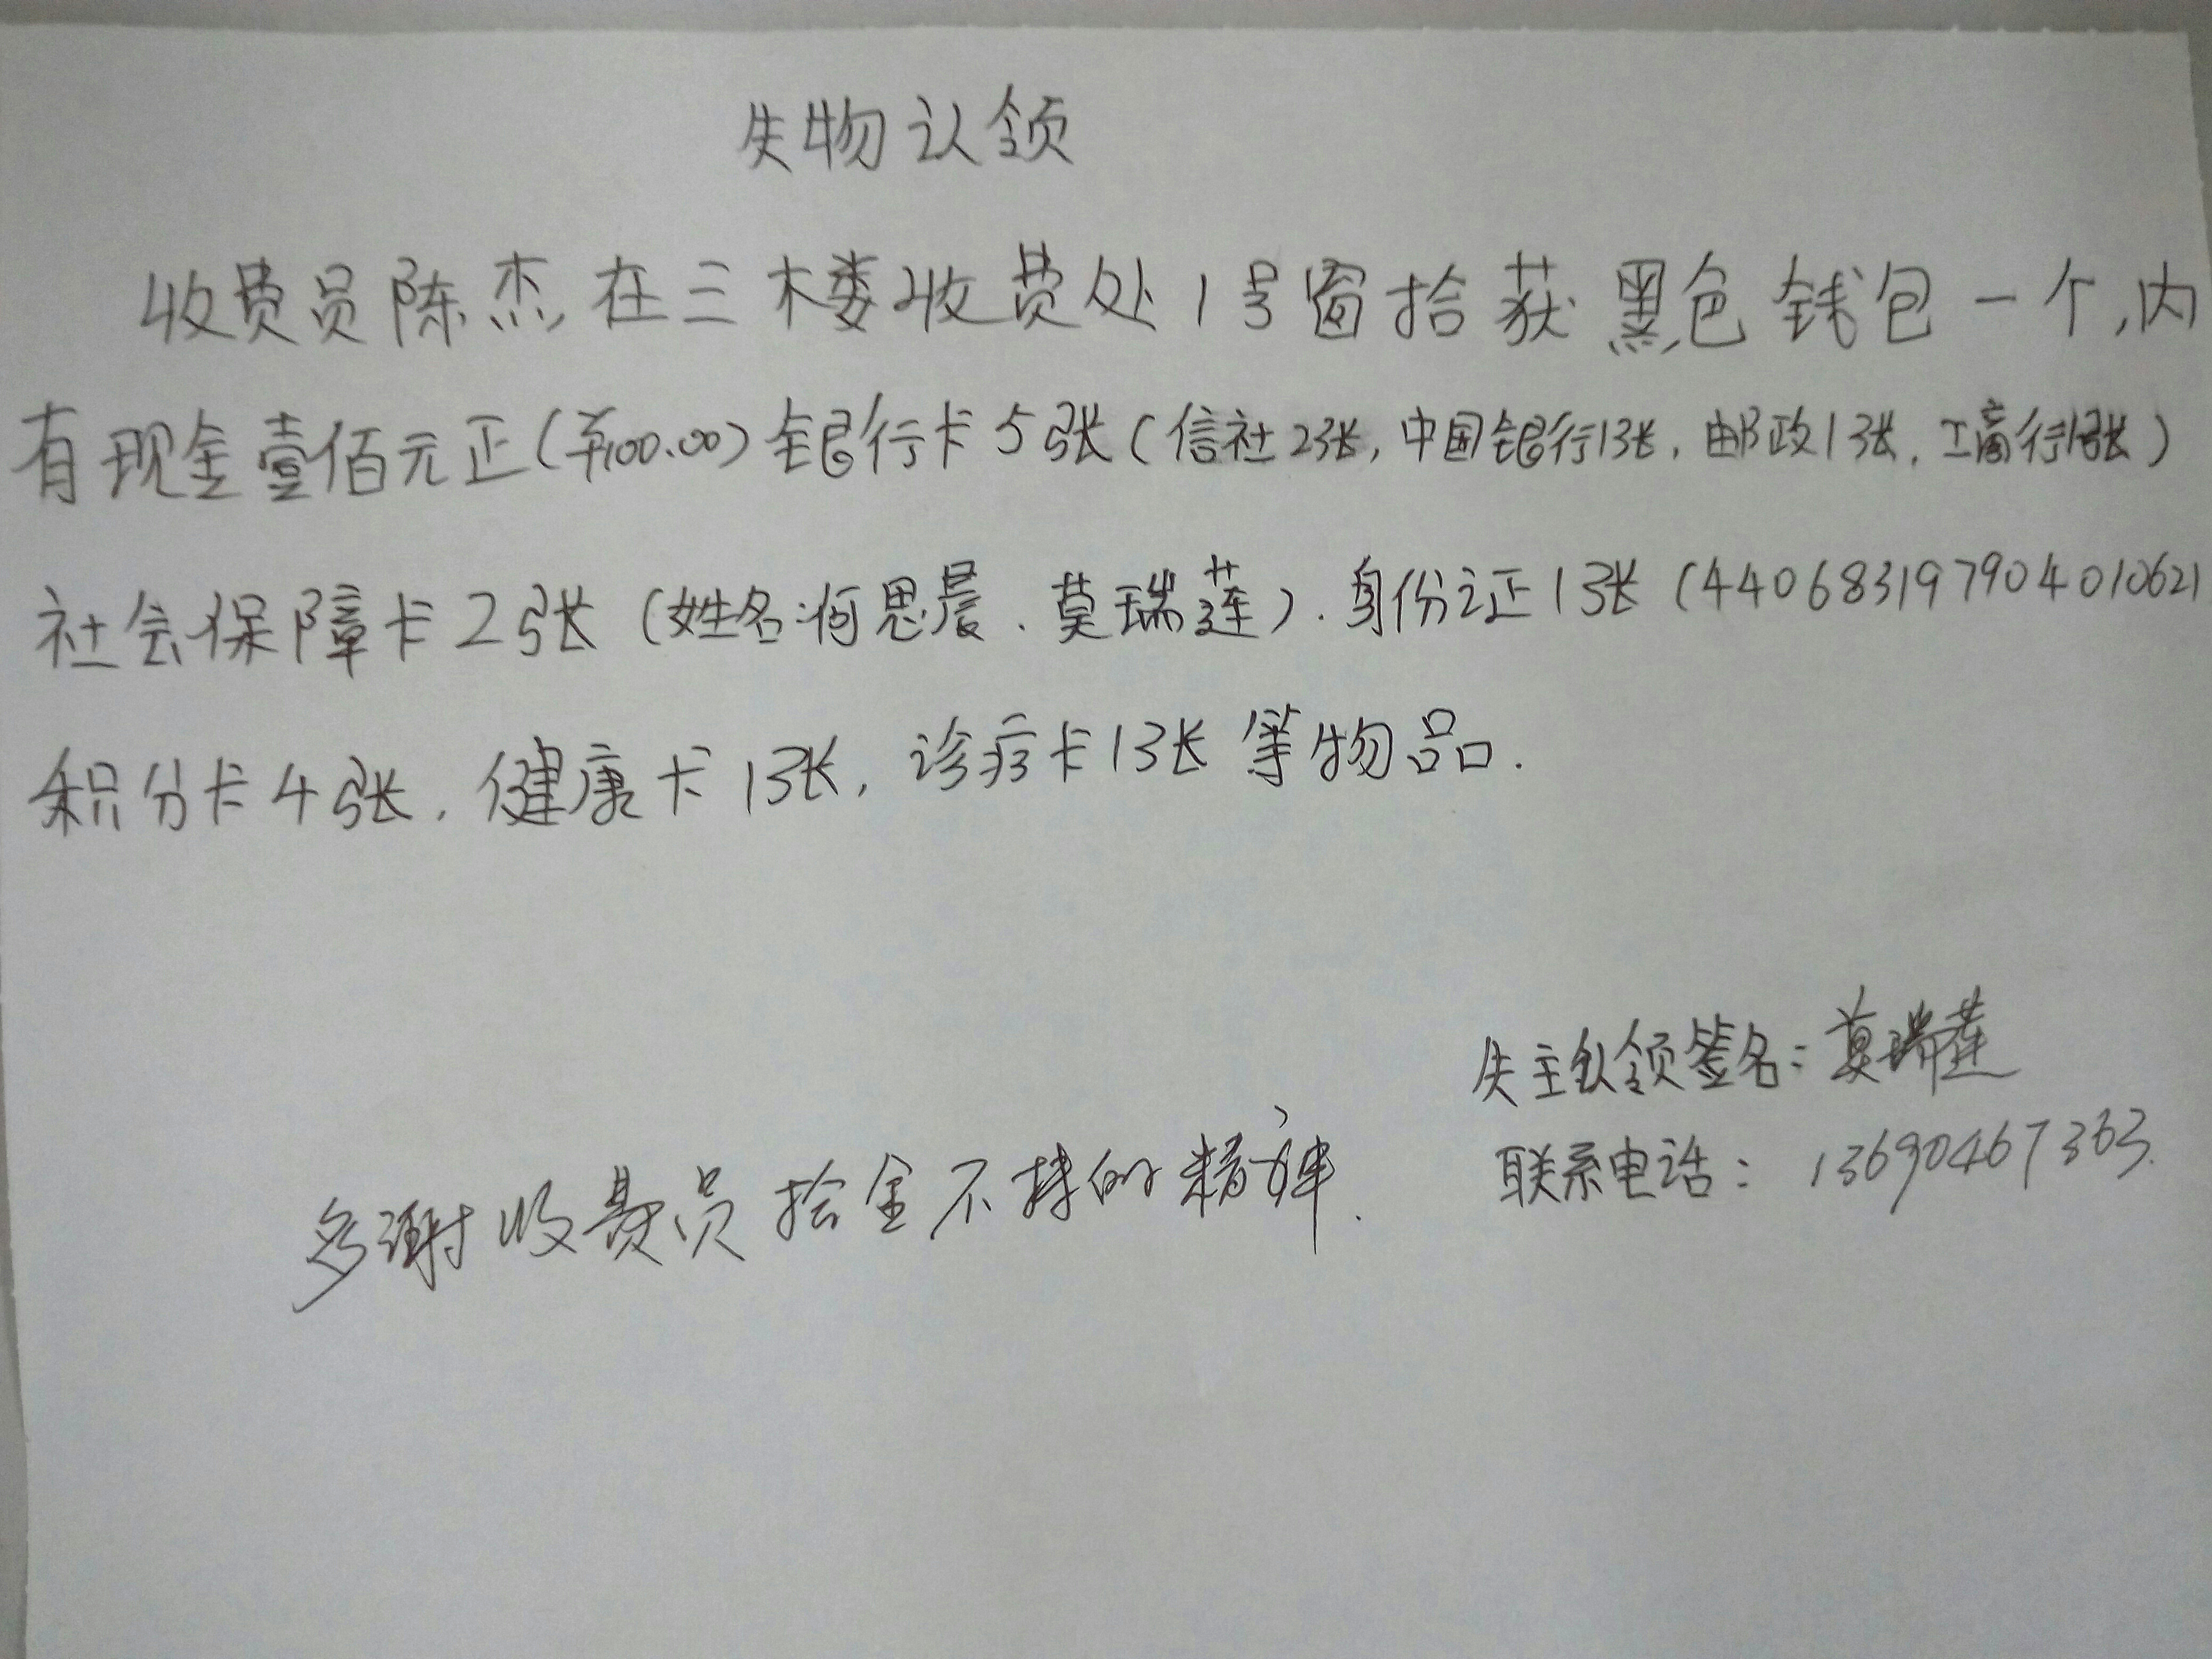 失物认领
收费员陈杰在三楼收费处1号窗拾获黑色钱包一个,内
有现金壹佰元正(¥100.00)银行卡5张(信社2张,中国银行1张,邮政1张,工商行1张)
社会保障卡2张(姓名:何思晨、莫瑞莲).身份证1张(440683197904010621
积分卡4张,健康卡1张,诊疗卡1张等物品.
失主认领签名:莫瑞莲
联系电话:13690467363.
多谢收费员拾金不抹的精神.